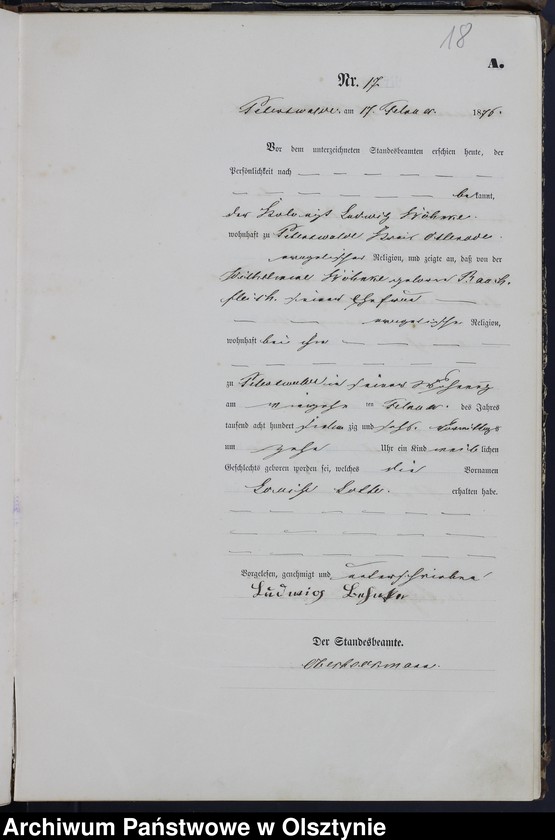 18
A.
Nr. 17.
Peterswalde am 17. Februar 1876.
Vor dem unterzeichneten Standesbeamten erschien heute, der
Persönlichkeit nach
bekannt,
der Ludwig
wohnhaft zu Peterswalde Kreis Osterode
evangelischer Religion, und zeigte an, daß von der
Wilhelmine geborene
seiner Ehefrau
evangelischer Religion,
wohnhaft bei ihm
zu Peterswalde in seiner Wohnung
am ten Februar des Jahres
tausend acht hundert siebenzig und sechs Vormittags
um zehn Uhr ein Kind weiblichen
Geschlechts geboren worden sei, welches die Vornamen
Louise erhalten habe.
Vorgelesen, genehmigt und unterschrieben
Ludwig
Der Standesbeamte.
Archiwum Państwowe w Olsztynie